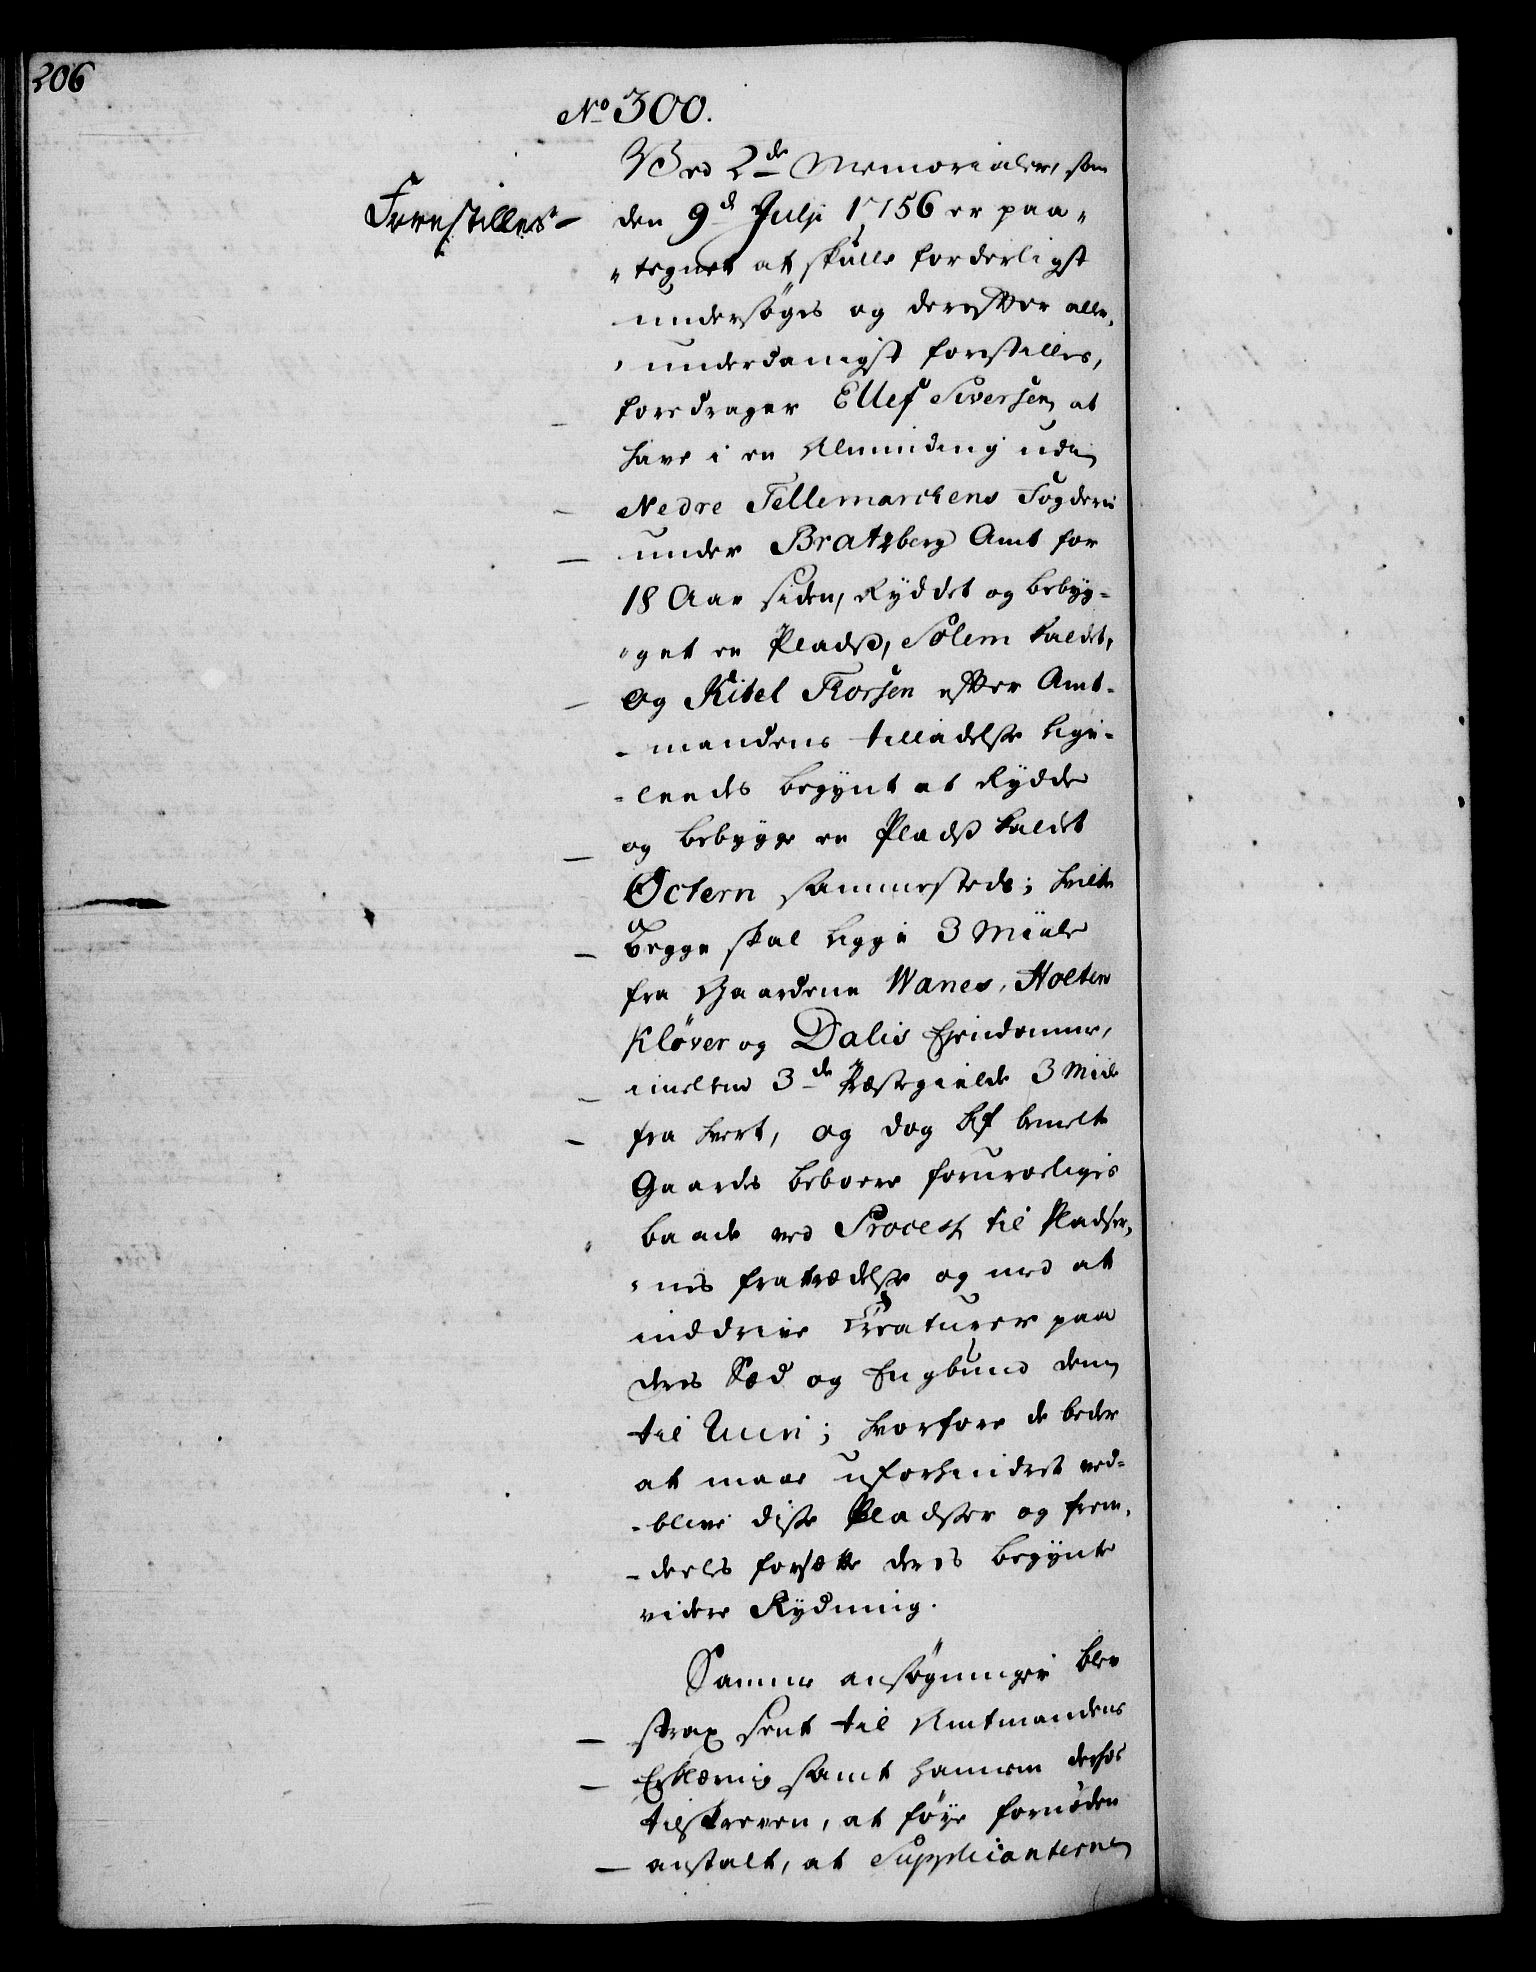 206
No 300.
Ved 2de Memorialer, som
Forestilles
den 9d Julji 1756 er paa„
„tegnet at skulle forderligst
undersøges og derefter aller„
„underdanigst forestilles,
foredrager Ellef Siversen at
have i en Alminding udi
Nedre Tellemarckens Fogderi
under Bratzberg Amt for
18 Aar siden, Ryddet og bebyg-
„get en Pladss, Solem kaldet,
og Kitel Torsen efter Amt-
-mandens tilladelse lige-
-leeds begynt at Rydde
og bebygge en Pladss kaldet
Øctern sammesteds; hvilke
begge skal ligge 3 Miile
fra Gaardene Wanes, Holten
Kløver og Dalis Eiendomme,
imellem 3de Præstegielde 3 Miil
fra hvert, og dog af bemelte
Gaards beboere foruroeliges
baade ved Process til Pladser„
„nes fratrædelse og med at
inddrive Creaturer paa
deres Sæd og Engbund dem
til Ruin; hvorfore de beder
at maae uforhindret ved-
-blive disse Pladser og frem„
-deeles forsætte deres begynte
videre Rydning.
Samme ansøgninger blev
strax sent til Amtmandens
Erklæring samt hannem derhos
tilskreven, at føye fornøden
anstalt, at Supplicanterne